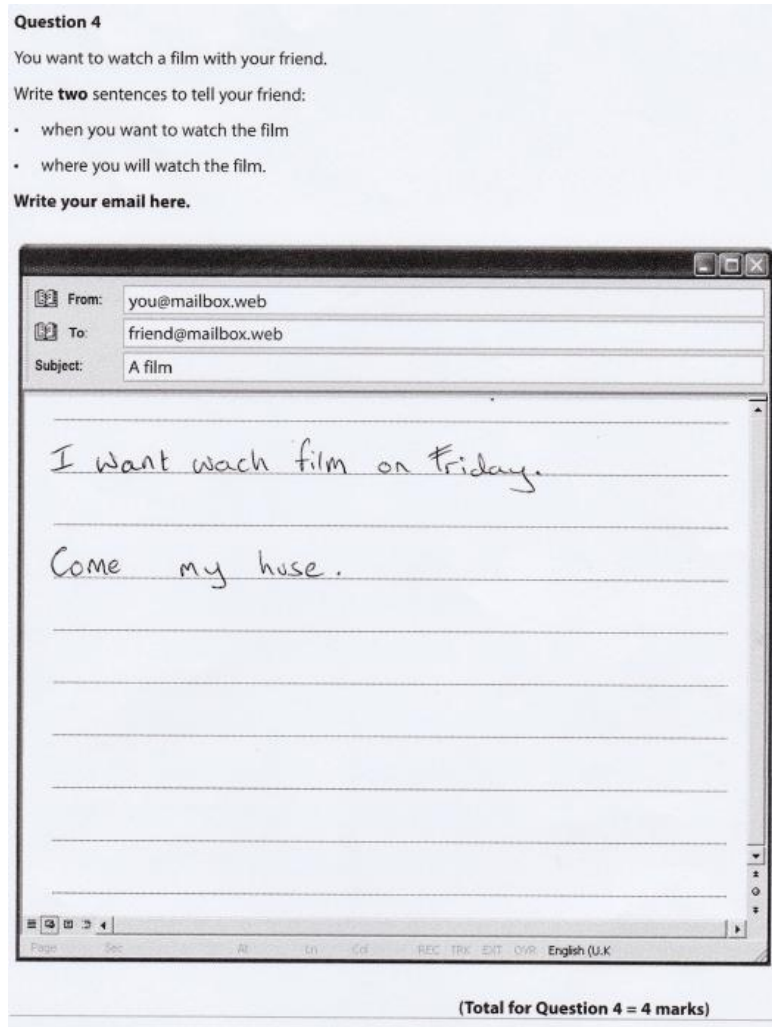 Question 4
You want to watch a film with your friend.
Write two sentences to tell your friend:
• when you want to watch the film
• where you will watch the film.
Write your email here.
From: you@mailbox.web
To: friend@mailbox.web
Subject: A film
I want wach film on Friday.
Come my huse.
Page Sec At Ln Col REC TRK EXT OVR English (U.K
(Total for Question 4 = 4 marks)